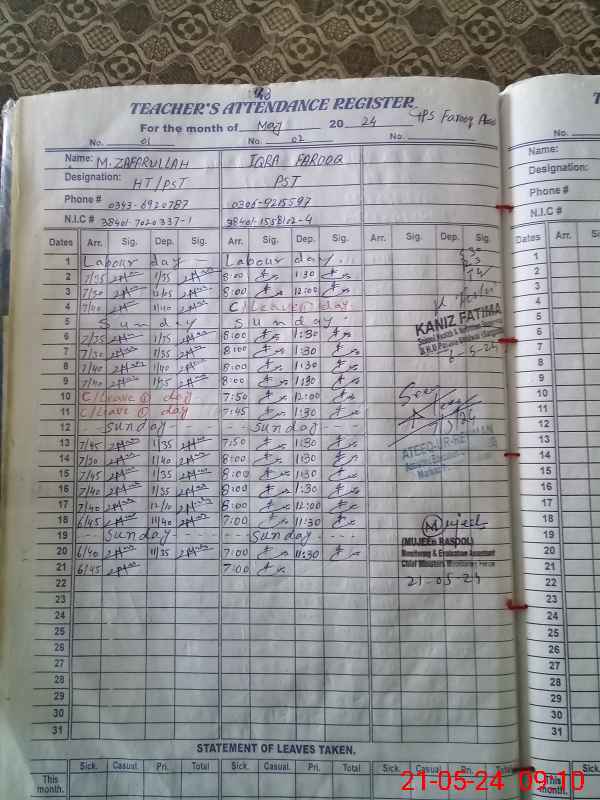 TEACHER'S ATTENDANCE REGISTER
For the month of May 20 24
No. 01 No. 02 No.
Name: M. ZAFARULLAH IQRA FAROOQ
Designation: HT/PST PST
Phone # 0343-6920787 0306-9215597
N.I.C # 38401-7020337-1 38401-1558102-4
Dates Arr. Sig. Dep. Sig. Arr. Sig. Dep. Sig. Arr. Sig. Dep. Sig.
1 Labour day - Labour day.
2 7/35 1/35 8:00 1:30
3 7/30 12/05 8:00 12:00
4 7/40 11/40 C/Leave 1 day
5 Sunday Sunday.
6 7/35 1/35 8:00 1:30
7 7/30 1/35 8:00 1:30
8 7/40 1/40 8:00 1:30
9 7/40 1:35 8:00 1:30
10 C/Leave 1 day 7:50 12:00
11 C/Leave 1 day 7:45 11:30
12 -- Sunday -- -- Sunday --
13 7/45 1/35 7:50 1:30
14 7/30 1/40 8:00 1:30
15 7/45 1/35 8:00 1:30
16 7/40 1/35 8:00 1:30
17 7/40 12/10 8:00 12:00
18 6/45 11/40 7:00 11:30
19 -- Sunday -- -- Sunday --
20 6/40 11/35 7:00 11:30
21 6/45 7:00
22
23
24
25
26
27
28
29
30
31
KANIZ FATIMA
6-5-24
Seen
ATEEQ-UR-REHMAN
Mujeeb
(MUJEEB RASOOL)
Monitoring & Evaluation Assistant
Chief Ministers Monitoring Force
21-05-24
STATEMENT OF LEAVES TAKEN.
Sick. Casual. Pri. Total Sick. Casual. Pri. Total Sick. Casual. Pri. Total
This month.
Name:
Designation:
Phone #
N.I.C #
Dates Arr. Sig
1
2
3
4
5
6
7
8
9
10
11
12
13
14
15
16
17
18
19
20
21
22
23
24
25
26
27
28
29
30
31
This month.
Sick.
21-05-24 09:10